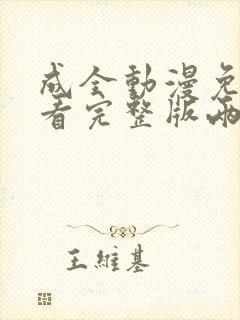 成全動漫免
看完整版兩
王維基